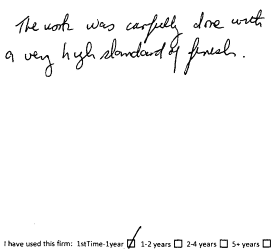 The work was carefully done with
a very high standard of finish.
I have used this firm: 1stTime-1year ☑ 1-2 years ☐ 2-4 years ☐ 5+ years ☐